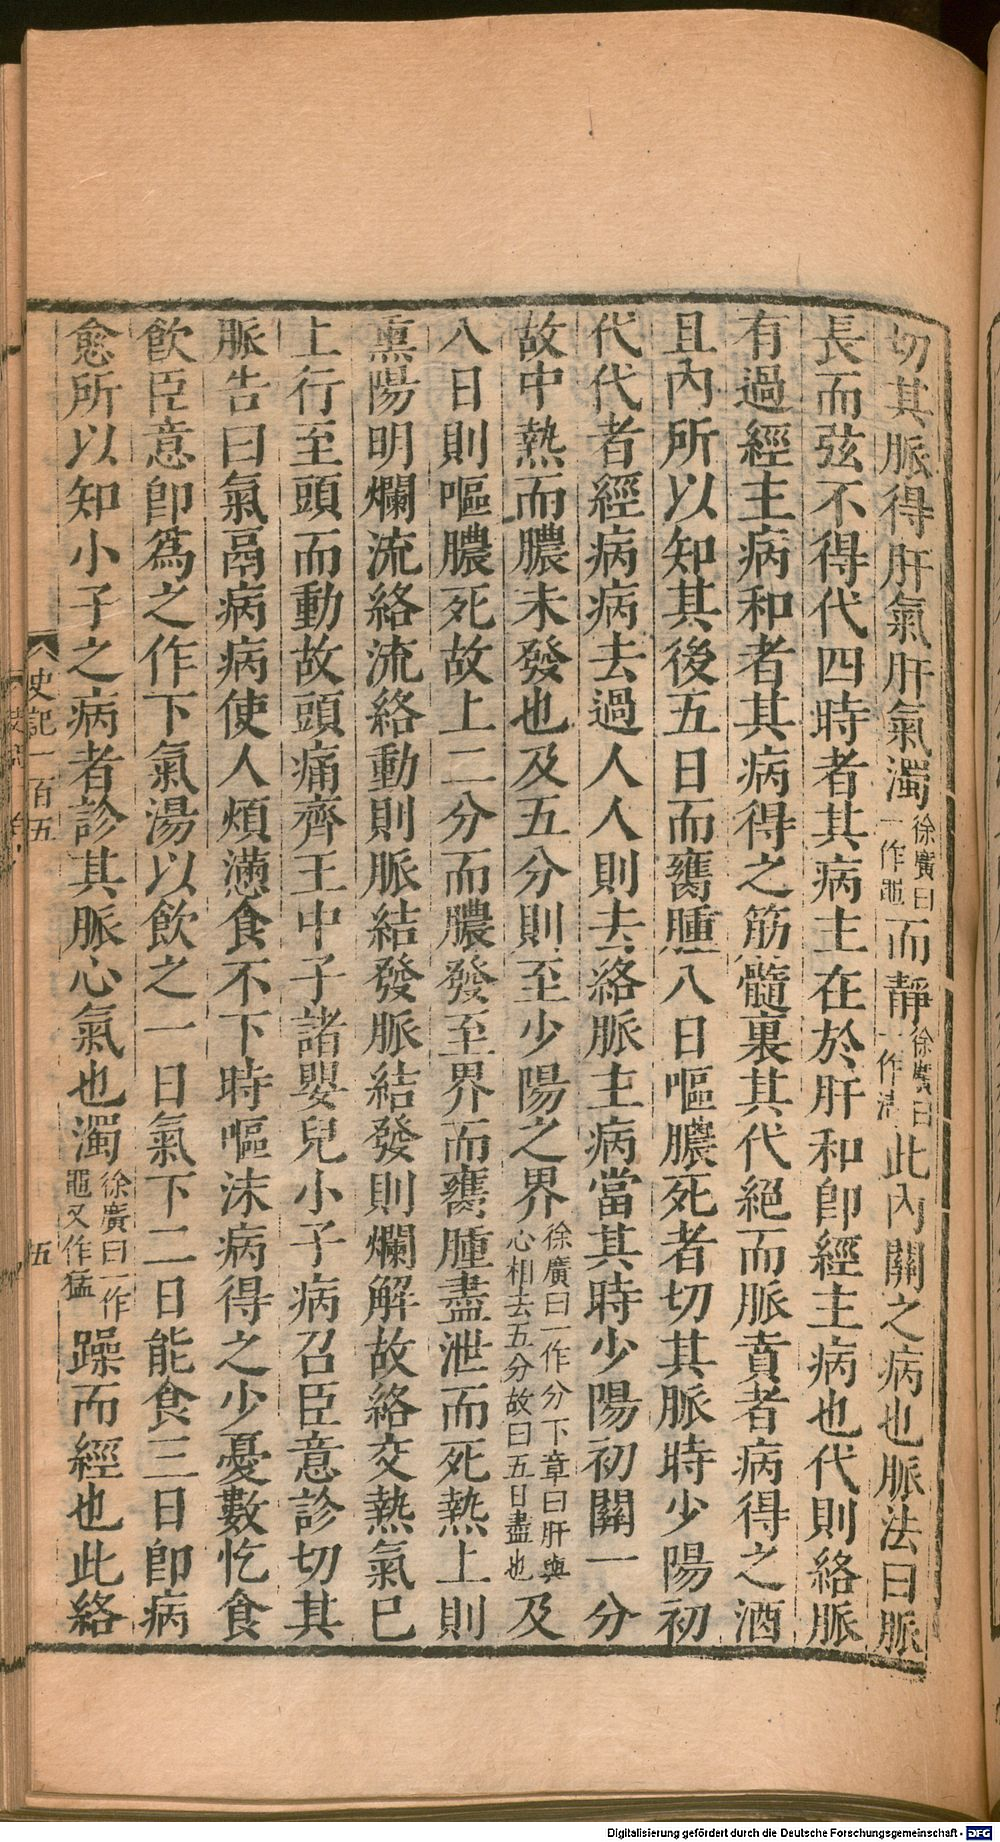 切其脈得肝氣肝氣濁徐廣曰一作黽而靜徐廣曰一作清此內關之病也脈法曰脈
長而弦不得代四時者其病主在於肝和卽經主病也代則絡脈
有過經主病和者其病得之筋髓裏其代絕而脈賁者病得之酒
且內所以知其後五日而癰腫八日嘔膿死者切其脈時少陽初
代代者經病病去過人人則去絡脈主病當其時少陽初關一分
故中熱而膿未發也及五分則至少陽之界徐廣曰一作分下章曰肝與心相去五分故曰五日盡也及
八日則嘔膿死故上二分而膿發至界而癰腫盡泄而死熱上則
熏陽明爛流絡流絡動則脈結發脈結發則爛解故絡交熱氣已
上行至頭而動故頭痛齊王中子諸嬰兒小子病召臣意診切其
脈告曰氣鬲病病使人煩懣食不下時嘔沫病得之少憂數忔食
飮臣意卽爲之作下氣湯以飮之一日氣下二日能食三日卽病
愈所以知小子之病者診其脈心氣也濁徐廣曰一作黽又作猛躁而經也此絡
史記一百五
五
Digitalisierung gefördert durch die Deutsche Forschungsgemeinschaft - DFG